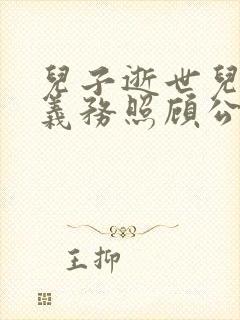 兒子逝世兒
義務照顧公
王抑